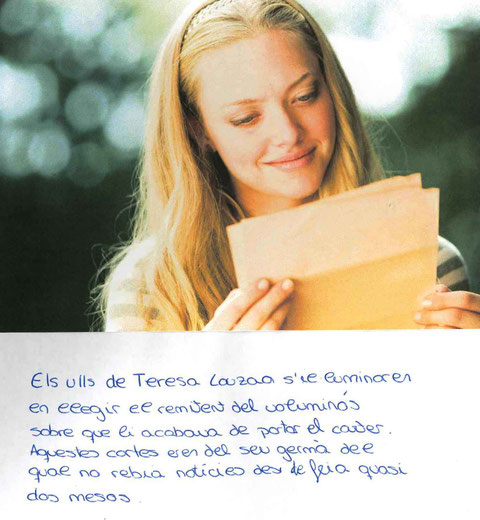 Els ulls de Teresa Louzao s'il·luminaren
en llegir el remitent del voluminós
sobre que li acabava de portar el carter.
Aquestes cartes eren del seu germà del
qual no rebia notícies des de feia quasi
dos mesos.